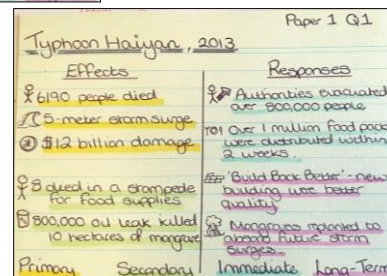 Paper 1 Q1
Typhoon Haiyan, 2013
Effects
6190 people died
5-meter storm surge
$12 billion damage
8 died in a stampede
for food supplies
800,000 oil leak killed
10 hectares of mangrove
Primary Secondary
Responses
Authorities evacuated
over 800,000 people
Over 1 million food packs
were distributed within
2 weeks.
'Build Back Better' - new
building were better
quality
Mangroves replanted to
absorb future storm
surges.
Immediate Long-Term